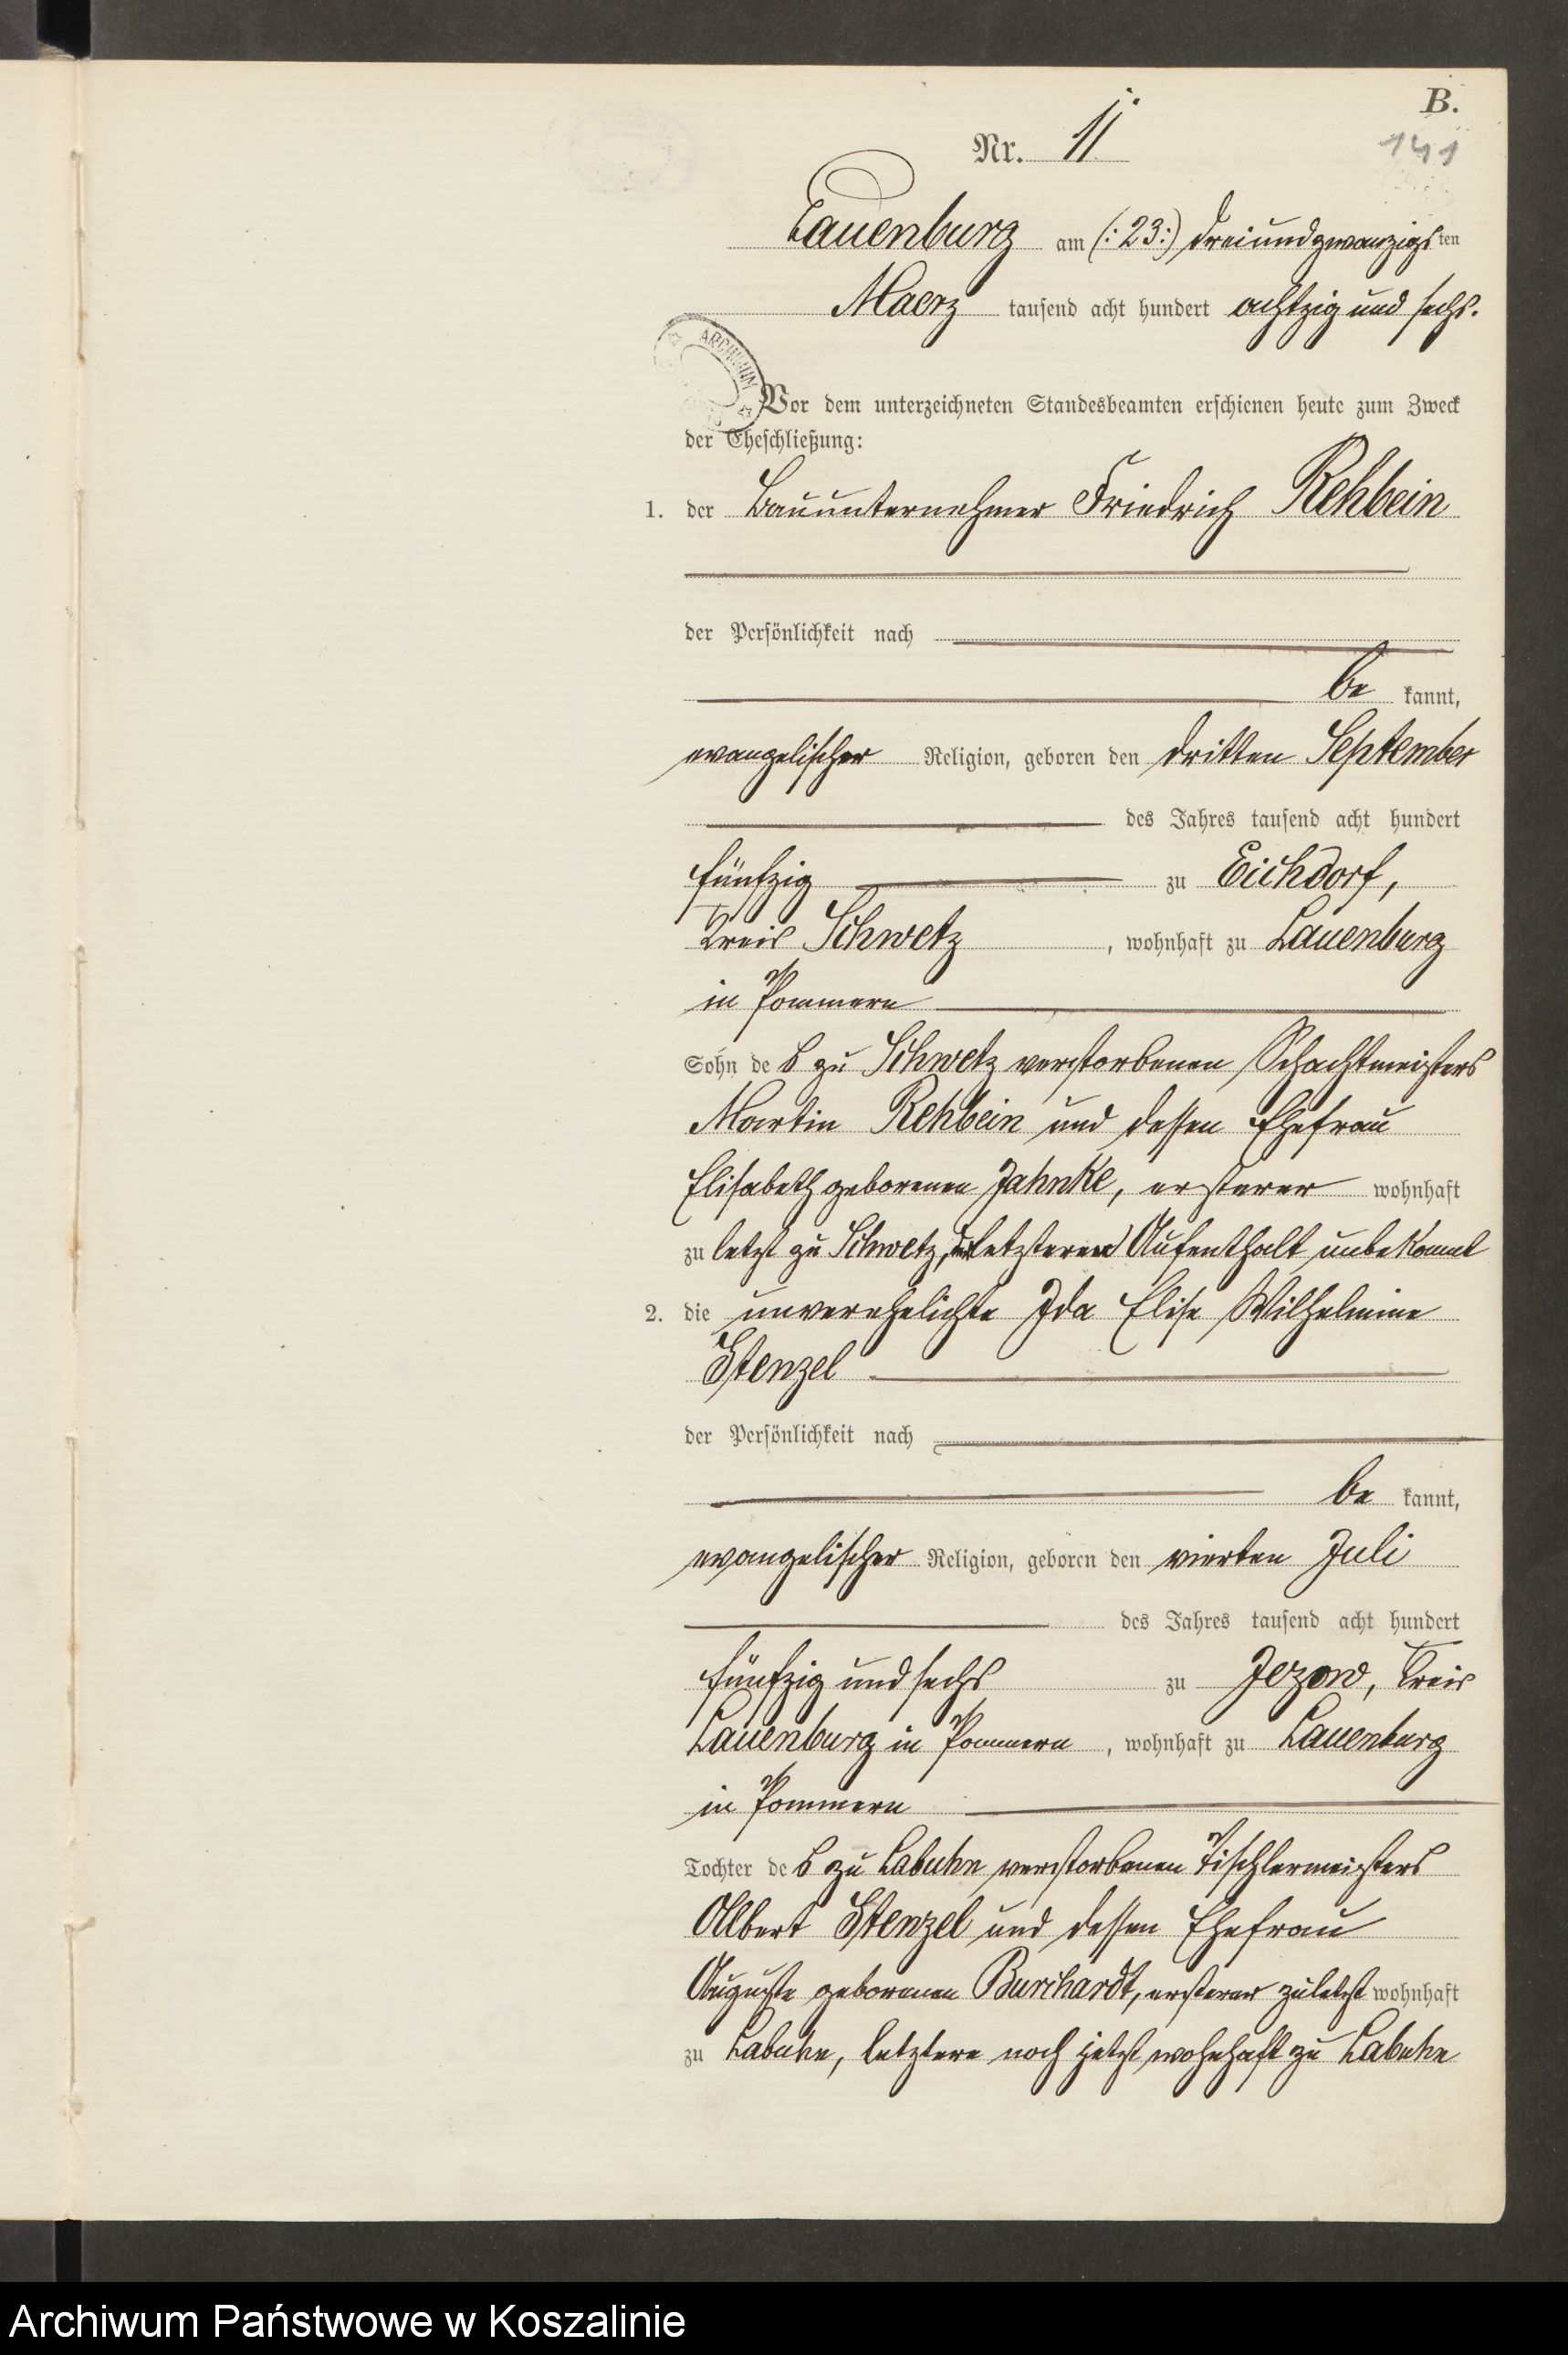 B.
Nr. 11.
141
Lauenburg am (: 23 :) dreiundzwanzigsten
Maerz tausend acht hundert achtzig und sechs.
ARCHIWUM
Vor dem unterzeichneten Standesbeamten erschienen heute zum Zweck
der Eheschließung:
1. der Bauunternehmer Friedrich Rehbein
der Persönlichkeit nach
be kannt,
evangelischer Religion, geboren den dritten September
des Jahres tausend acht hundert
fünfzig zu Eichdorf,
Kreis Schwetz, wohnhaft zu Lauenburg
in Pommern
Sohn des zu Schwetz verstorbenen Schachtmeisters
Martin Rehbein und dessen Ehefrau
Elisabeth geborenen Jahnke, ersterer wohnhaft
zu letzt zu Schwetz, letzteren Aufenthalt unbekannt
2. die unverehelichte Ida Elise Wilhelmine
Stenzel
der Persönlichkeit nach
be kannt,
evangelischer Religion, geboren den vierten Juli
des Jahres tausend acht hundert
fünfzig und sechs zu Jezow, Kreis
Lauenburg in Pommern, wohnhaft zu Lauenburg
in Pommern
Tochter des zu Labuhn verstorbenen Tischlermeisters
Albert Stenzel und dessen Ehefrau
Auguste geborenen Burchardt, ersterer zuletzt wohnhaft
zu Labuhn, letztere noch jetzt wohnhaft zu Labuhn
Archiwum Państwowe w Koszalinie